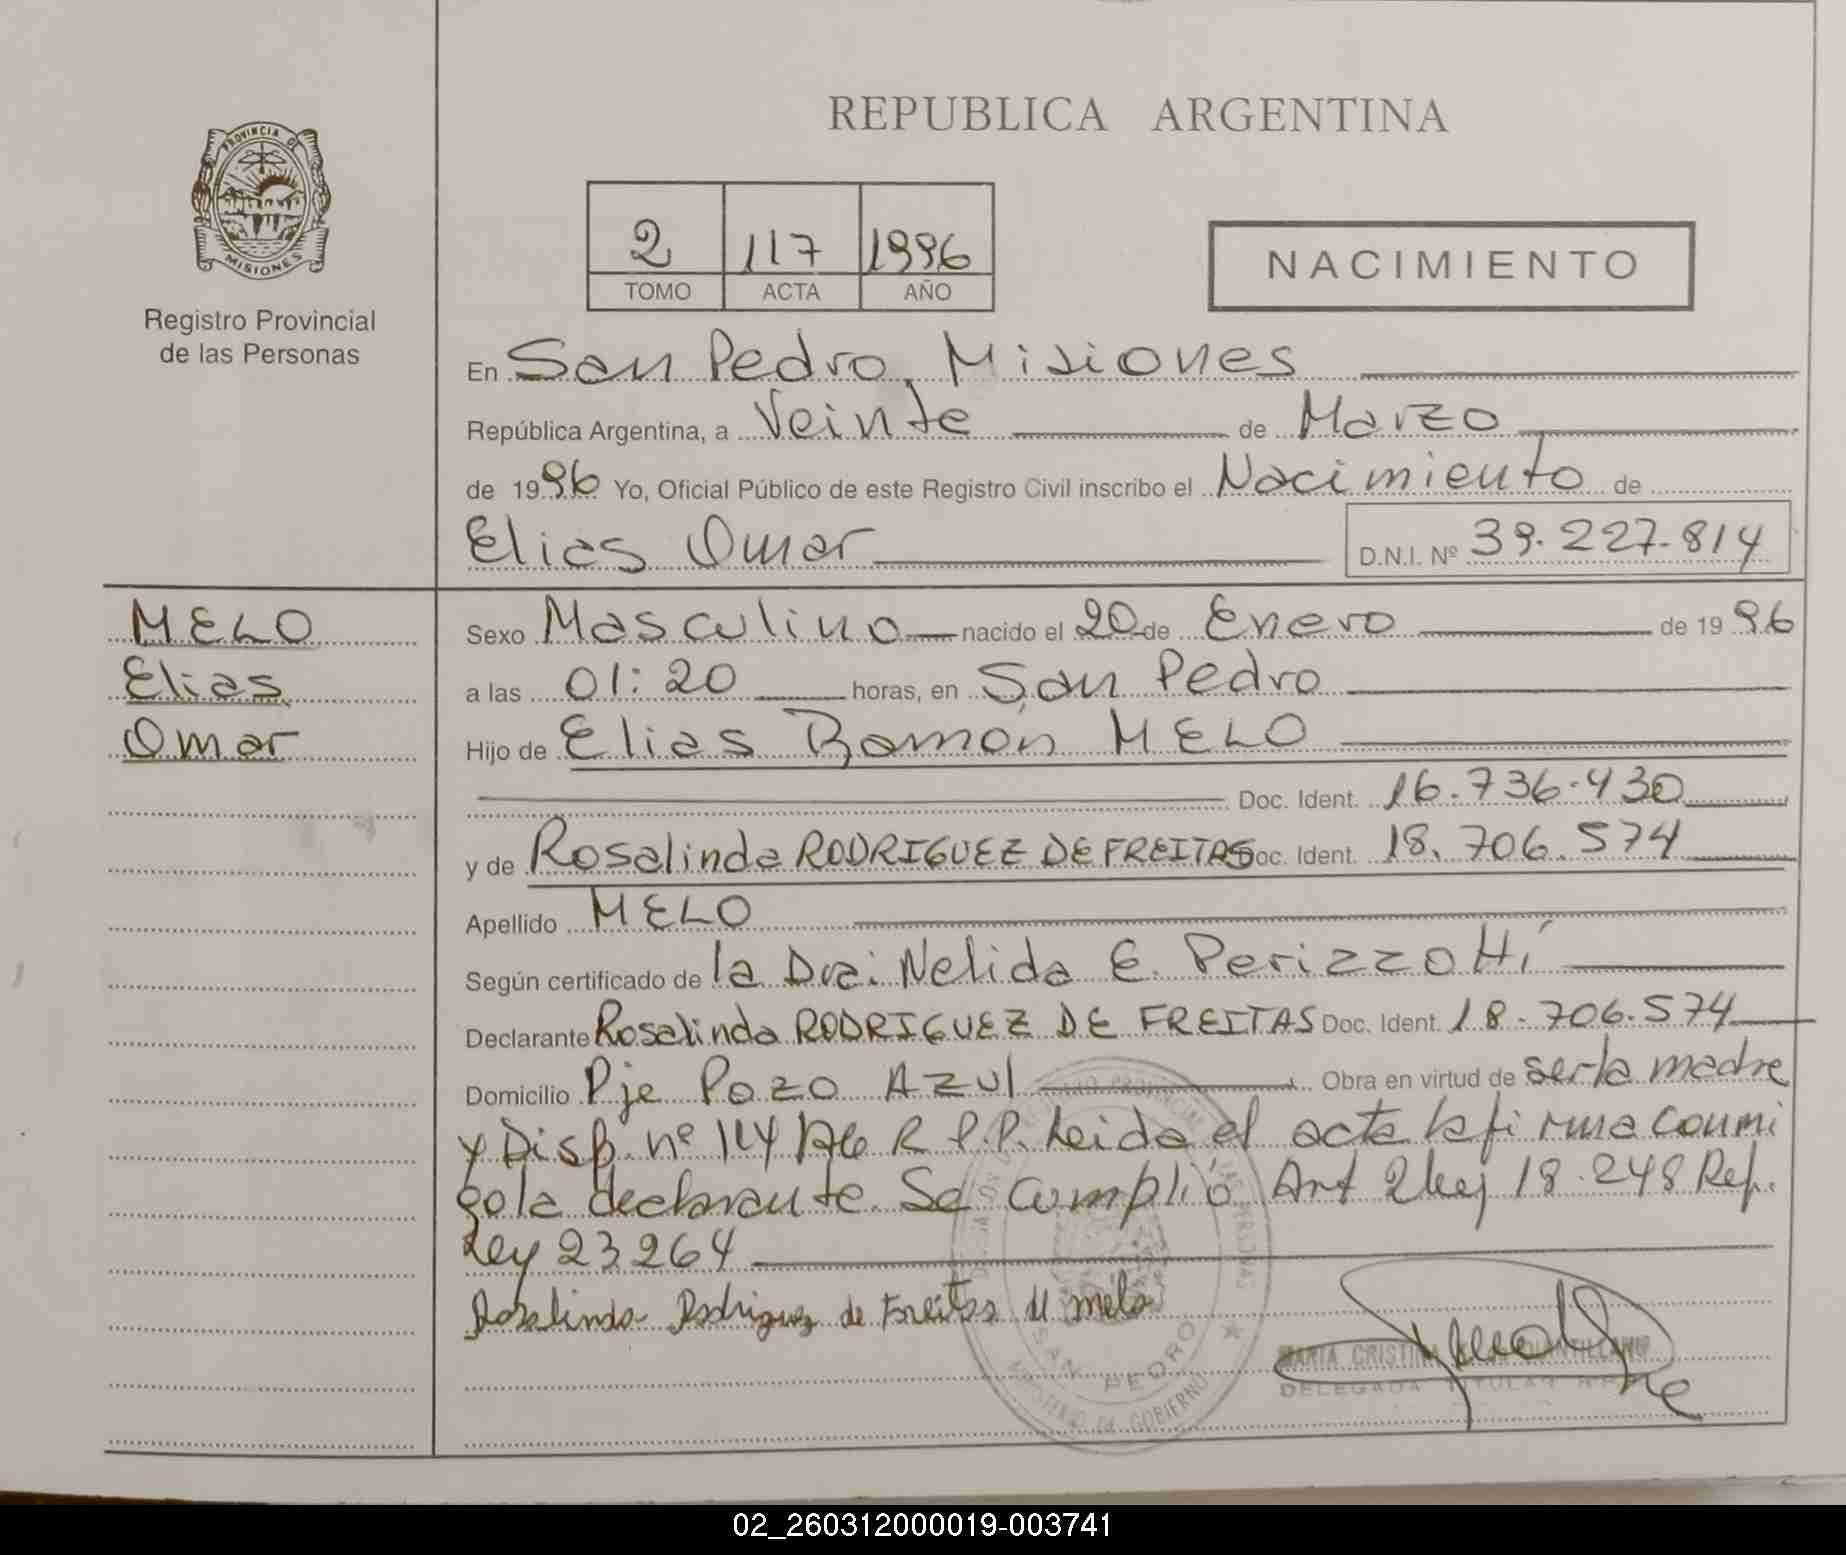 REPUBLICA ARGENTINA
PROVINCIA DE
MISIONES
Registro Provincial
de las Personas
2 117 1996
TOMO ACTA AÑO
NACIMIENTO
En San Pedro, Misiones
República Argentina, a Veinte de Marzo
de 1996 Yo, Oficial Público de este Registro Civil inscribo el Nacimiento de
Elias Omar D.N.I. Nº 39.227.814
MELO
Elias
Omar
Sexo Masculino nacido el 20 de Enero de 1996
a las 01:20 horas, en San Pedro
Hijo de Elias Ramón MELO
Doc. Ident. 16.736.430
y de Rosalinda RODRIGUEZ DE FREITAS Doc. Ident. 18.706.574
Apellido MELO
Según certificado de la Dra: Nelida E. Perizzotti
Declarante Rosalinda RODRIGUEZ DE FREITAS Doc. Ident. 18.706.574
Domicilio Pje Pozo Azul Obra en virtud de ser la madre
y Disp. nº 114/ R.P.P. Leida el acta la firma conmi
go la declarante. Se cumplió Art 2 Ley 18.248 Ref.
Ley 23264
Rosalinda Rodriguez de Freitas d melo
SAN PEDRO
MINISTERIO DE GOBIERNO
MARIA CRISTINA
DELEGADA TITULAR
02_260312000019-003741